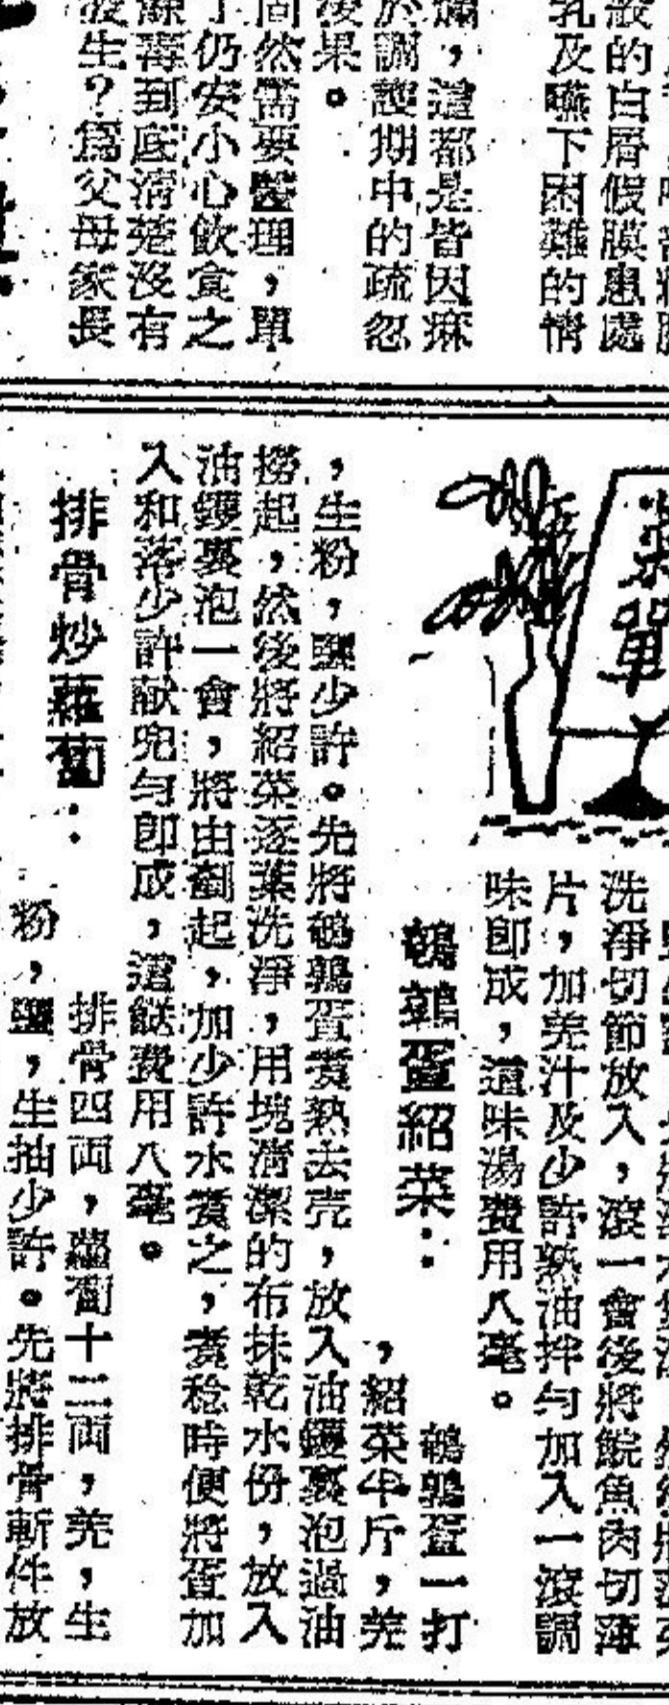 散的白屑假膜患處
乳及嚥下困難的情
滿，這都是皆因痳
於調護期中的疏忽
後果。
固然需要醫理，單
了仍安小心飲食之
餘毒到底清楚沒有
發生？為父母家長
菜單
洗淨切節放入，滾一會後將鯇魚肉切薄
片，加羌汁及少許熟油拌勻加入一滾調
味即成，這味湯費用八毫。
鵪鶉蛋紹菜：
鵪鶉蛋一打
，紹菜半斤，羌
，生粉，鹽少許。先將鵪鶉蛋煑熟去壳，放入油鑊裏泡過油
撈起，然後將紹菜逐葉洗淨，用塊清潔的布抹乾水份，放入
油鑊裏泡一會，將由剷起，加少許水煑之，煑稔時便將蛋加
入和落少許献兜勻即成，這餸費用八毫。
排骨炒蘿蔔：
排骨四両，蘿蔔十二両，羌，生
粉，鹽，生抽少許。先將排骨斬件放